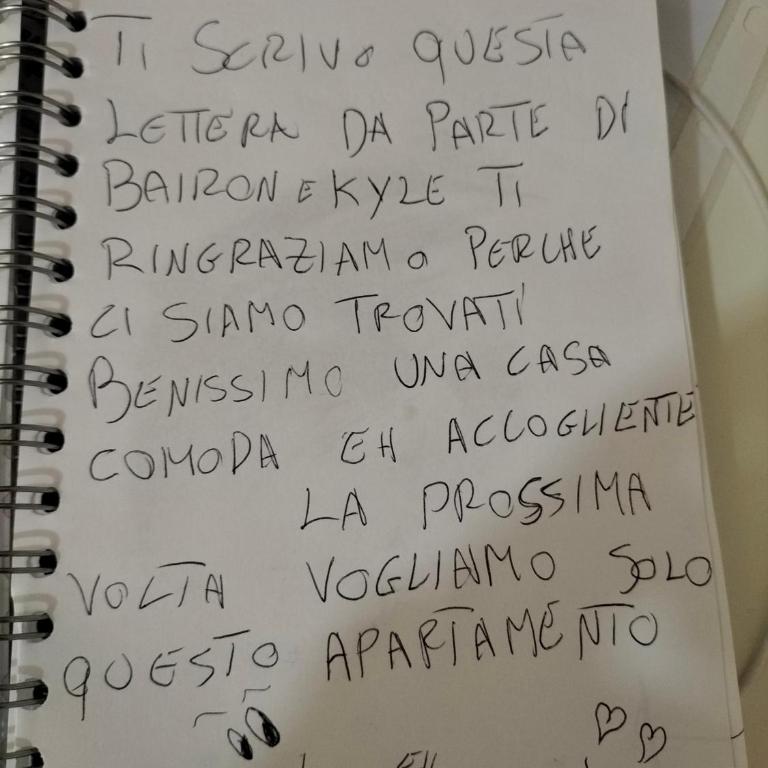 TI SCRIVO QUESTA
LETTERA DA PARTE DI
BAIRON E KYLE TI
RINGRAZIAMO PERCHE
CI SIAMO TROVATI
BENISSIMO UNA CASA
COMODA EH ACCOGLIENTE
LA PROSSIMA
VOLTA VOGLIAMO SOLO
QUESTO APARTAMENTO